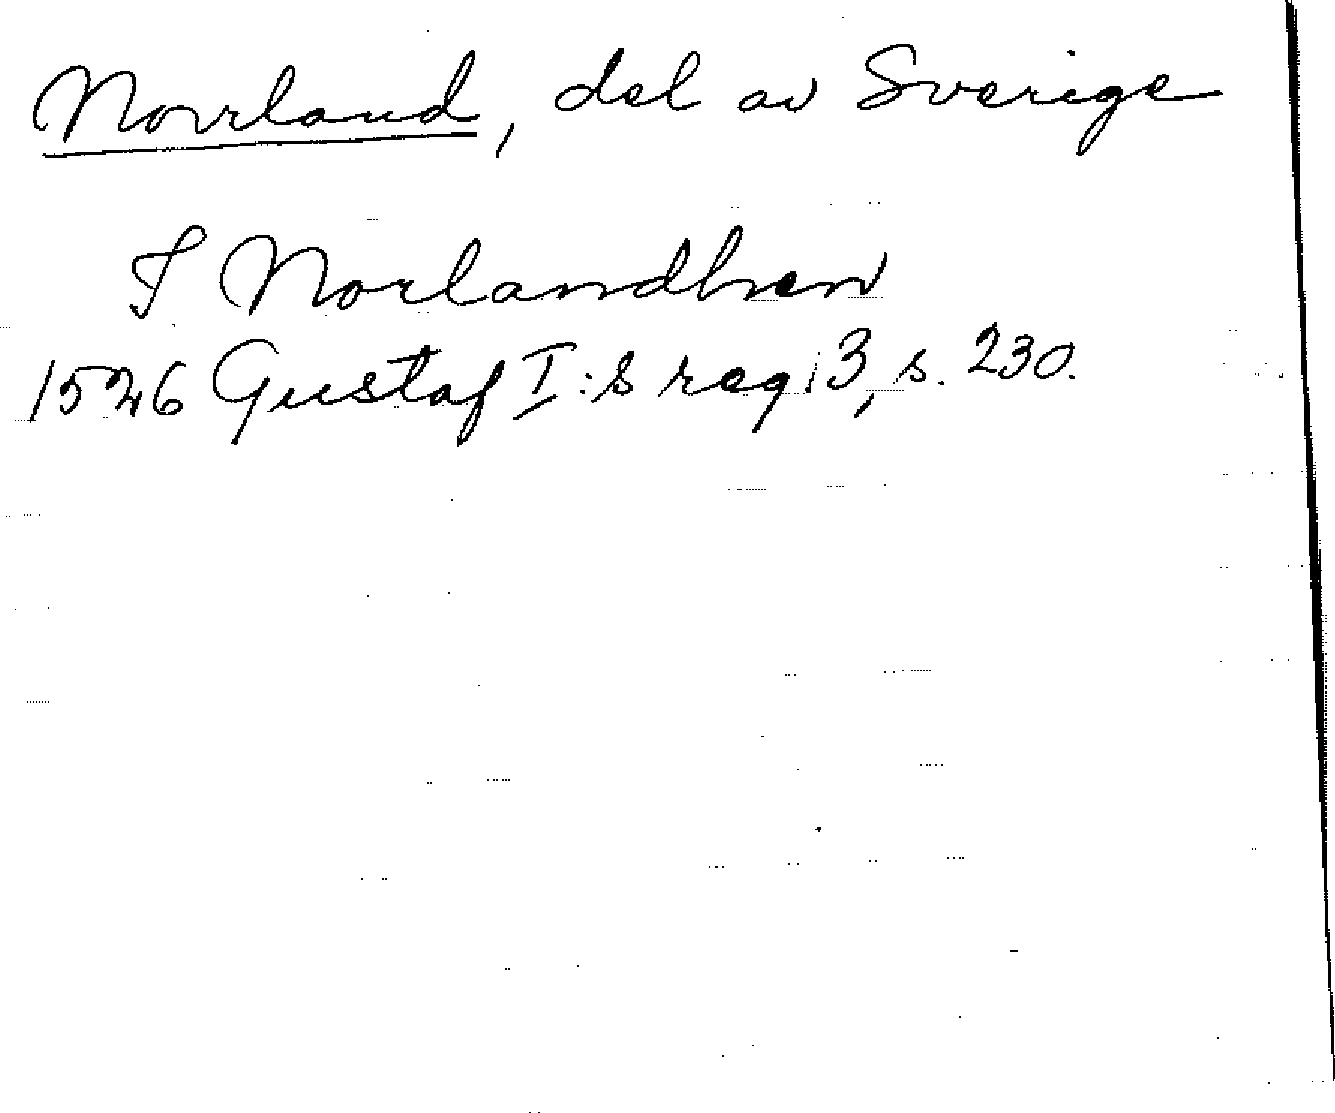 Norrland, del av Sverige
I Norlandhen
1526 Gustaf I:s reg. 3, s. 230.